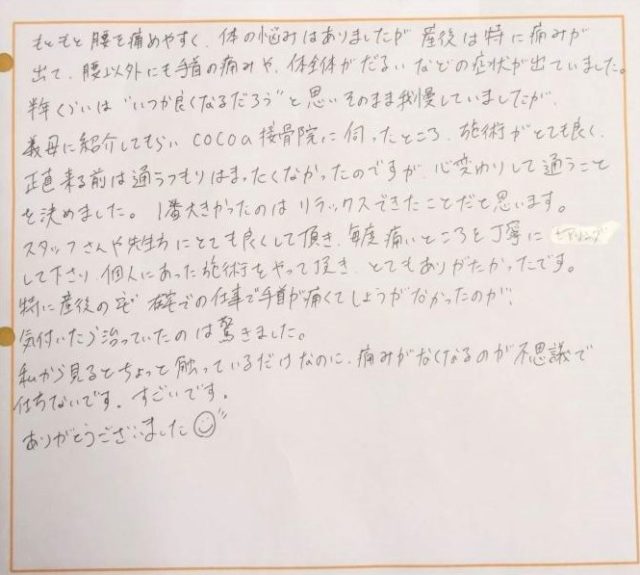 もともと腰を痛めやすく、体の悩みはありましたが 産後は特に痛みが
出て、腰以外にも手首の痛みや、体全体がだるい などの症状が出ていました。
半年くらいは "いつか良くなるだろう" と思い そのまま我慢していましたが、
義母に紹介してもらい cocoa接骨院に伺ったところ、施術がとても良く、
正直 来る前は通うつもりはまったくなかったのですが、心変わりして通うこと
を決めました。 1番大きかったのは リラックスできたことだと思います。
スタッフさんや先生方にとても良くして頂き、毎度痛いところを丁寧に ヒアリング
して下さり、個人にあった施術をやって頂き、とてもありがたかったです。
特に産後の 在宅での仕事で手首が痛くてしょうがなかったのが、
気付いたら治っていたのは驚きました。
私から見るとちょっと触っているだけなのに、痛みがなくなるのが不思議で
仕方ないです。すごいです。
ありがとうございました